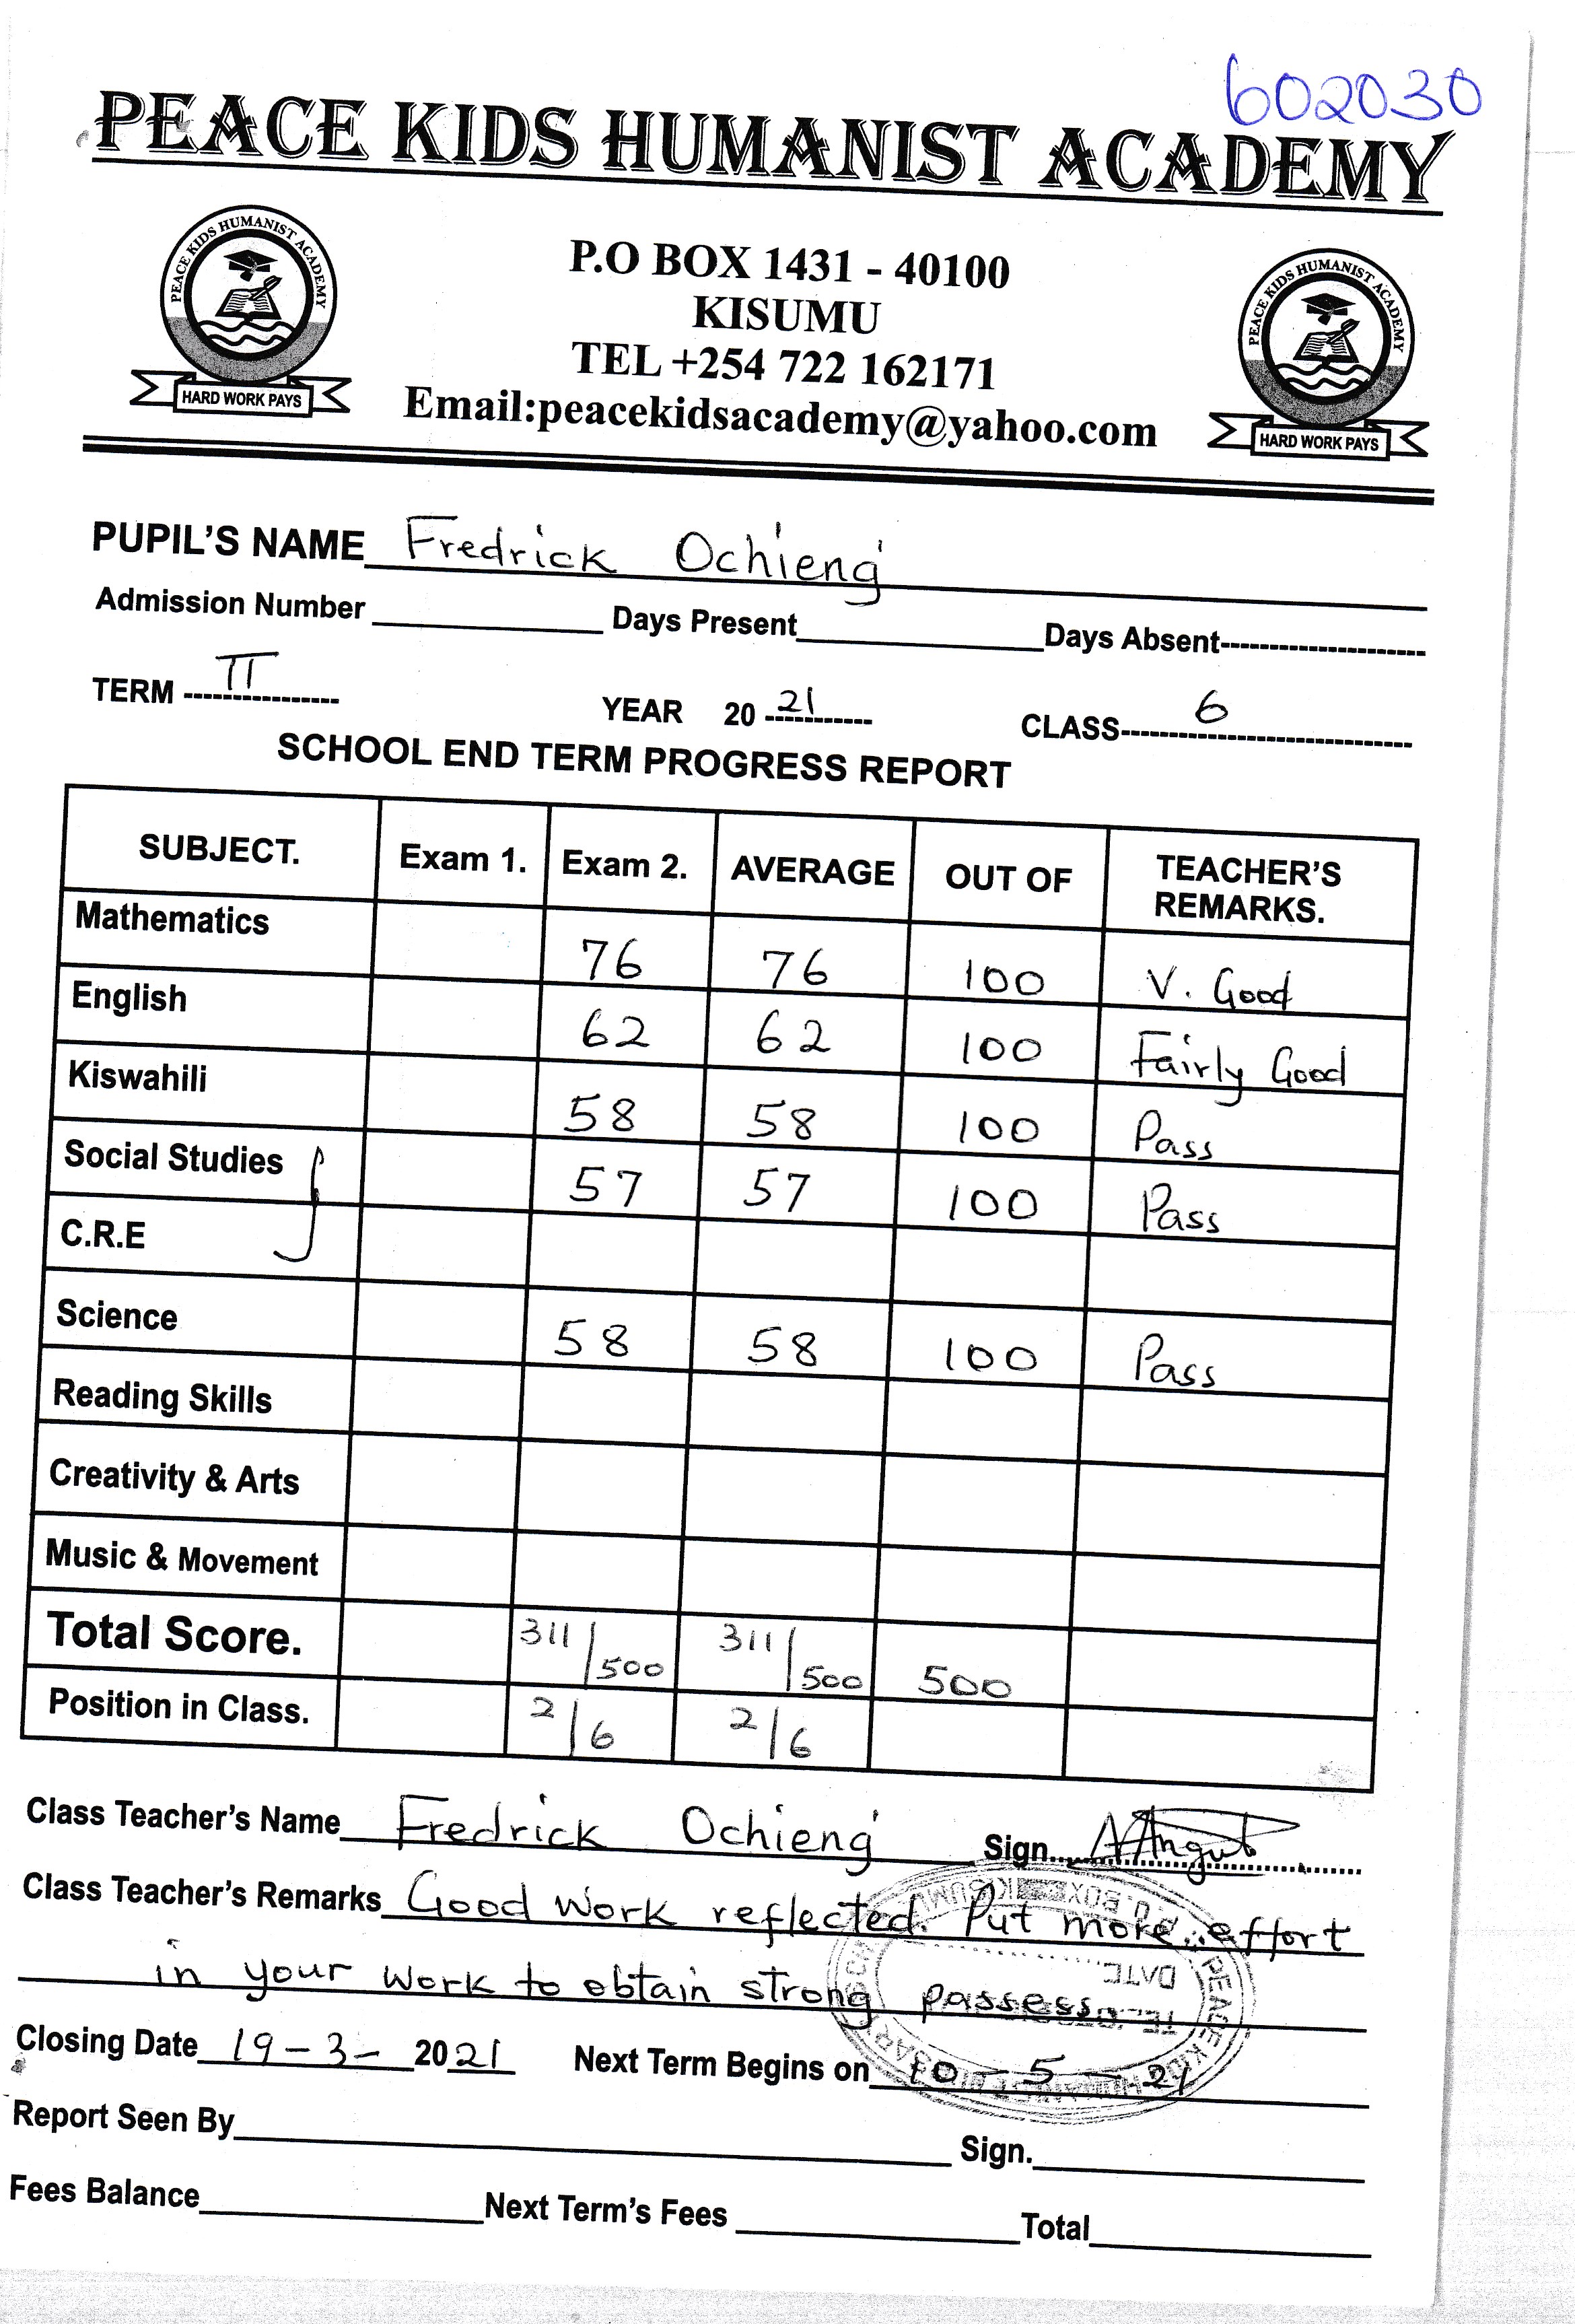 602030
PEACE KIDS HUMANIST ACADEMY
PEACE KIDS HUMANIST ACADEMY
HARD WORK PAYS
P.O BOX 1431 - 40100
KISUMU
TEL +254 722 162171
Email:peacekidsacademy@yahoo.com
PEACE KIDS HUMANIST ACADEMY
HARD WORK PAYS
PUPIL'S NAME Fredrick Ochieng'
Admission Number Days Present Days Absent
TERM II YEAR 2021 CLASS 6
SCHOOL END TERM PROGRESS REPORT
SUBJECT. Exam 1. Exam 2. AVERAGE OUT OF TEACHER'S REMARKS.
Mathematics 76 76 100 V. Good
English 62 62 100 Fairly Good
Kiswahili 58 58 100 Pass
Social Studies 57 57 100 Pass
C.R.E
Science 58 58 100 Pass
Reading Skills
Creativity & Arts
Music & Movement
Total Score. 311/500 311/500 500
Position in Class. 2/6 2/6
Class Teacher's Name Fredrick Ochieng' Sign.
Class Teacher's Remarks Good work reflected. Put more effort
in your work to obtain strong passess.
Closing Date 19-3- 2021 Next Term Begins on 10-5-21
Report Seen By Sign.
Fees Balance Next Term's Fees Total
P.O. BOX KISUMU
DATE
PEACE KIDS